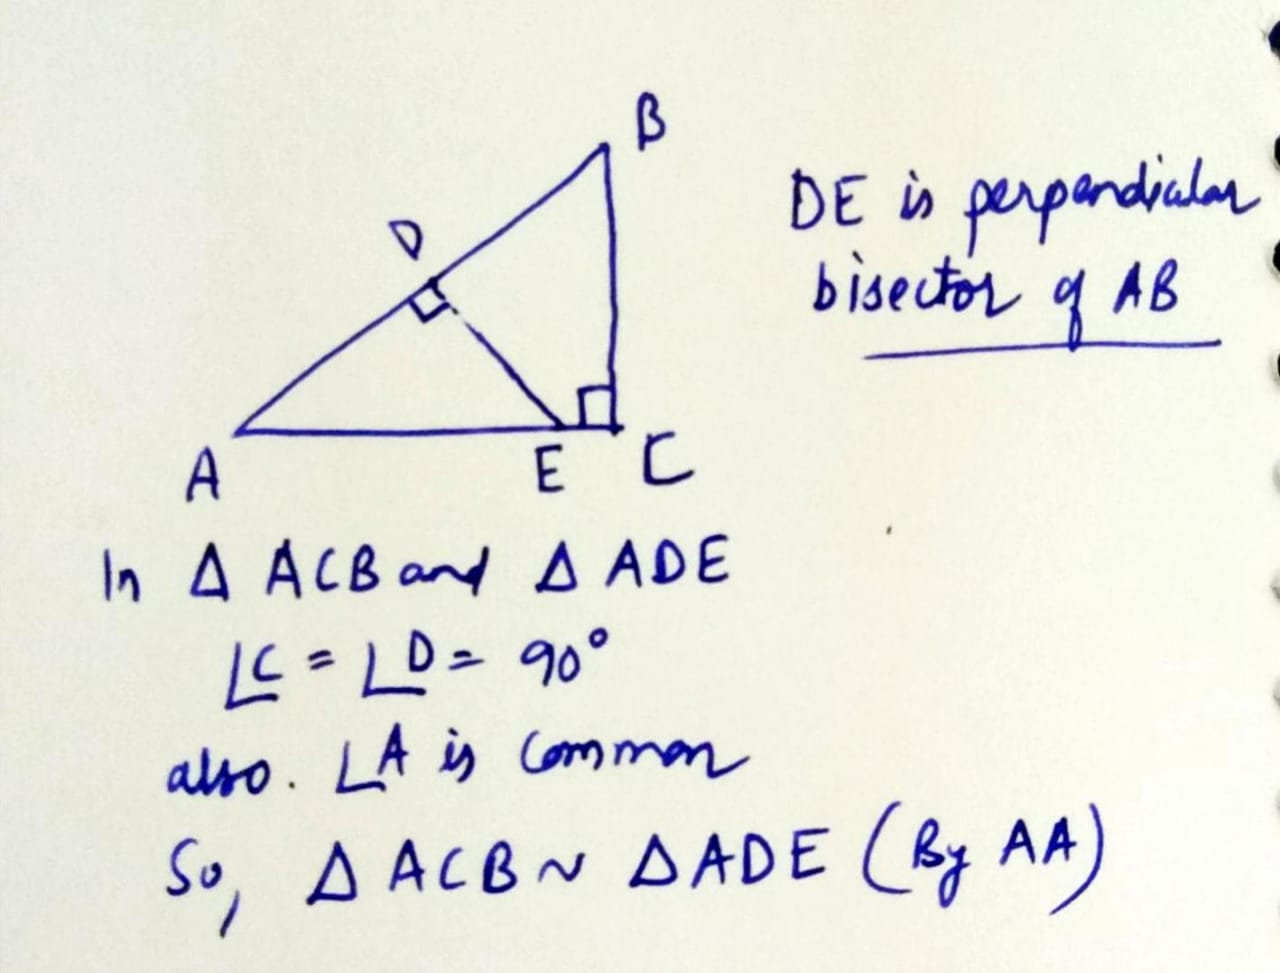 B
DE is perpendicular
D
bisector of AB
A
E
C
In Δ ACB and Δ ADE
∠C = ∠D = 90°
also. ∠A is common
So, Δ ACB ~ Δ ADE (By AA)